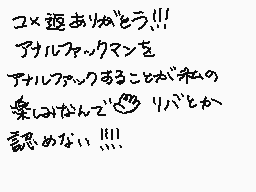 コメ返ありがとう!!!
アナルファックマンを
アナルファックすることが私の
楽しみなんで👋リバとか
認めない!!!!